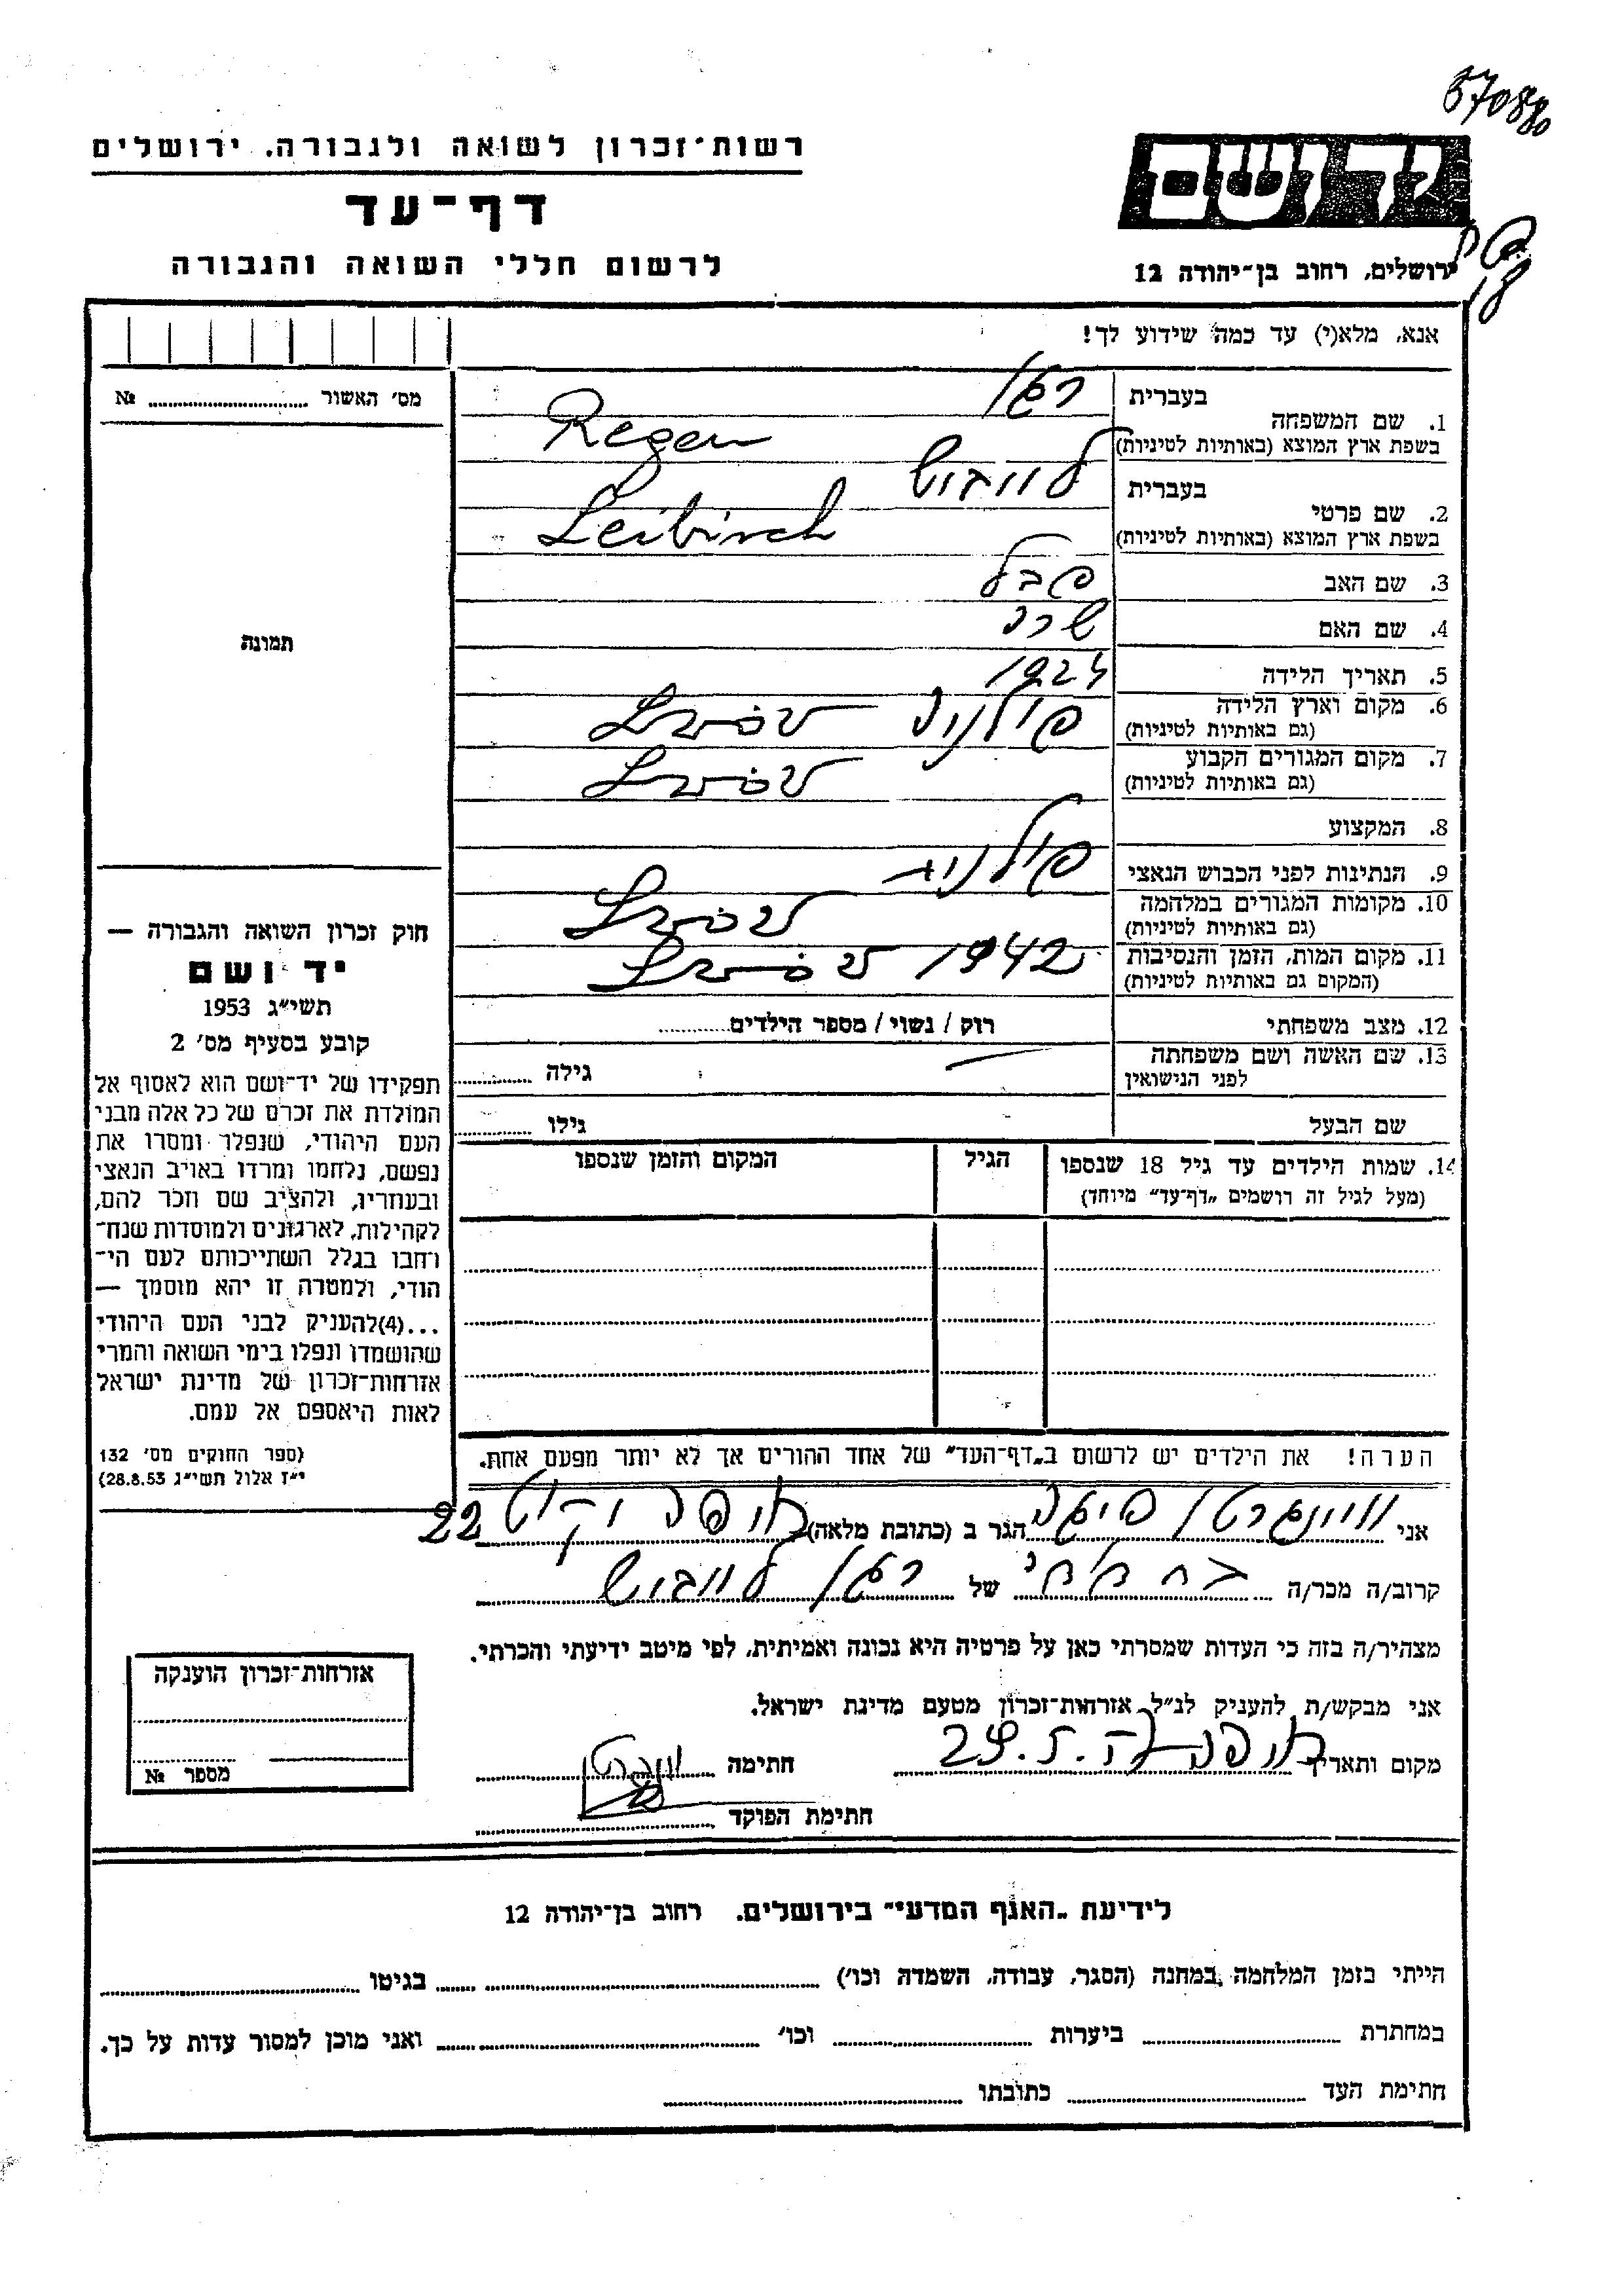 57088
רשות־זכרון לשואה ולגבורה. ירושלים
דף־עד
לרשום חללי השואה והגבורה
יד ושם
ירושלים, רחוב בן־יהודה 12
אנא, מלא(י) עד כמה שידוע לך!
מס׳ האשור № 
תמונה
חוק זכרון השואה והגבורה —
יד ושם
תשי״ג 1953
קובע בסעיף מס׳ 2
תפקידו של יד־ושם הוא לאסוף אל
המולדת את זכרם של כל אלה מבני
העם היהודי, שנפלו ומסרו את
נפשם, נלחמו ומרדו באויב הנאצי
ובעוזריו, ולהציב שם וזכר להם,
לקהילות, לארגונים ולמוסדות שנח־
רחבו בגלל השתייכותם לעם הי־
הודי, ולמטרה זו יהא מוסמך —
...(4)להעניק לבני העם היהודי
שהושמדו ונפלו בימי השואה והמרי
אזרחות־זכרון של מדינת ישראל
לאות היאספם אל עמם.
(ספר החוקים מס׳ 132
י״ז אלול תשי״ג 28.8.53)
1. שם המשפחה בעברית רגן
בשפת ארץ המוצא (באותיות לטיניות) Regen
2. שם פרטי בעברית לייביש
בשפת ארץ המוצא (באותיות לטיניות)
3. שם האב
4. שם האם שרה
5. תאריך הלידה 1924
6. מקום וארץ הלידה פולניה
(גם באותיות לטיניות)
7. מקום המגורים הקבוע
(גם באותיות לטיניות)
8. המקצוע
9. הנתינות לפני הכבוש הנאצי פולנית
10. מקומות המגורים במלחמה
(גם באותיות לטיניות)
11. מקום המות, הזמן והנסיבות 1942
(המקום גם באותיות לטיניות)
12. מצב משפחתי רוק / נשוי / מספר הילדים
13. שם האשה ושם משפחתה גילה
לפני הנישואין
שם הבעל גילו
14. שמות הילדים עד גיל 18 שנספו הגיל המקום והזמן שנספו
(מעל לגיל זה רושמים „דף־עד״ מיוחד)
הערה! את הילדים יש לרשום ב„דף־העד״ של אחד ההורים אך לא יותר מפעם אחת.
אני הגר ב (כתובת מלאה) חיפה 22
קרוב/ה מכר/ה של רגן לייביש
מצהיר/ה בזה כי העדות שמסרתי כאן על פרטיה היא נכונה ואמיתית, לפי מיטב ידיעתי והכרתי.
אני מבקש/ת להעניק לנ״ל אזרחות־זכרון מטעם מדינת ישראל.
מקום ותאריך חיפה חתימה
חתימת הפוקד
אזרחות־זכרון הוענקה
מספר №
לידיעת „האגף המדעי״ בירושלים. רחוב בן־יהודה 12
הייתי בזמן המלחמה במחנה (הסגר, עבודה, השמדה וכו׳) בגיטו
במחתרת ביערות וכו׳ ואני מוכן למסור עדות על כך.
חתימת העד כתובתו